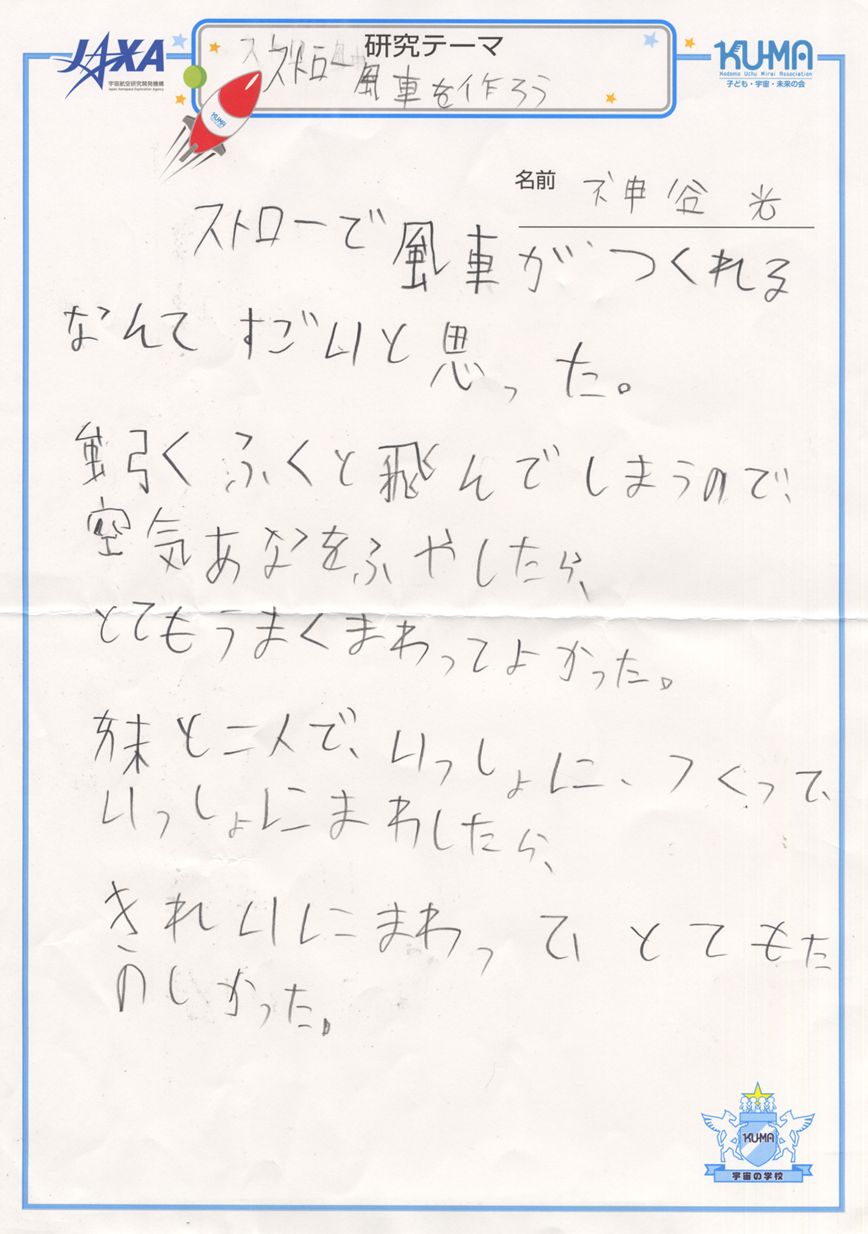 JAXA
宇宙航空研究開発機構
Japan Aerospace Exploration Agency
研究テーマ
ストロー風車を作ろう
KUMA
Kodomo Uchu Mirai Association
子ども・宇宙・未来の会
KUMA
名前 神谷 光
ストローで風車がつくれる
なんて すごいと思った。
強くふくと飛んでしまうので、
空気あなをふやしたら、
とてもうまくまわってよかった。
妹と二人で、いっしょに、つくって、
いっしょにまわしたら、
きれいにまわって、とてもた
のしかった。
KUMA
宇宙の学校